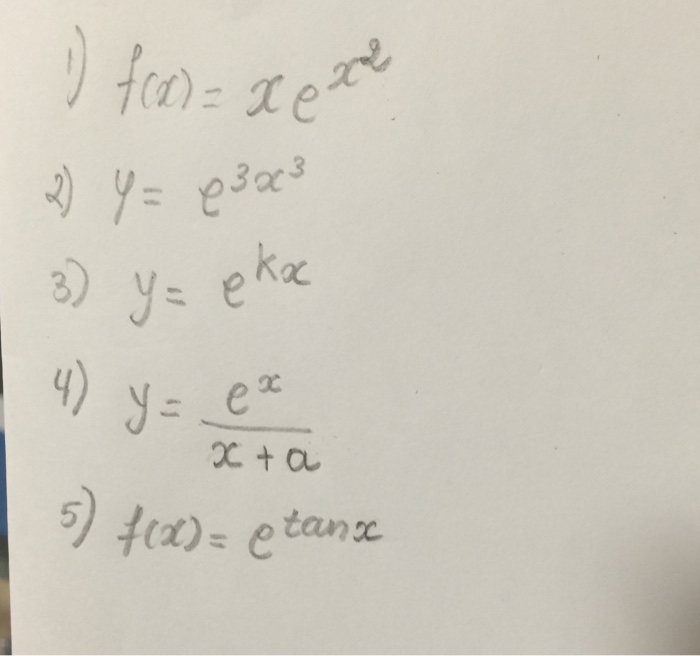 1) f(x) = xe^{x^2}
2) y = e^{3x^3}
3) y = e^{kx}
4) y = \frac{e^x}{x + a}
5) f(x) = e^{tan x}